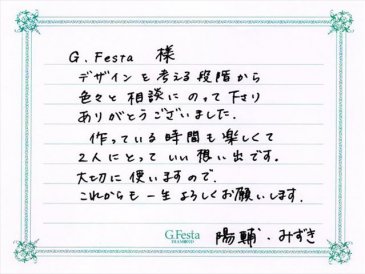 G.Festa 様
デザインを考える段階から
色々と相談にのって下さり
ありがとうございました.
作っている時間も楽しくて
2人にとっていい想い出です。
大切に使いますので、
これからも一生よろしくお願いします.
G.Festa
陽輔・みずき